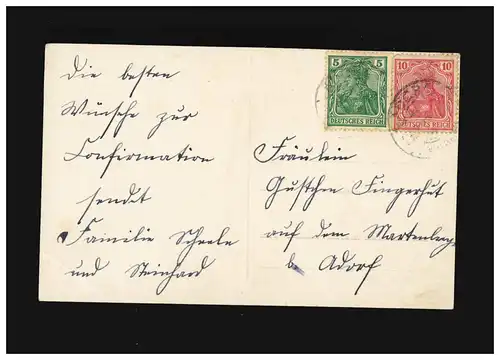 5 5 10 10
DEUTSCHES REICH DEUTSCHES REICH
Die besten
Wünsche zur
Confirmation
sendet
Familie Scheele
und Steinhard
Fräulein
Gustchen Fingerhut
auf dem Martenberge
b. Adorf